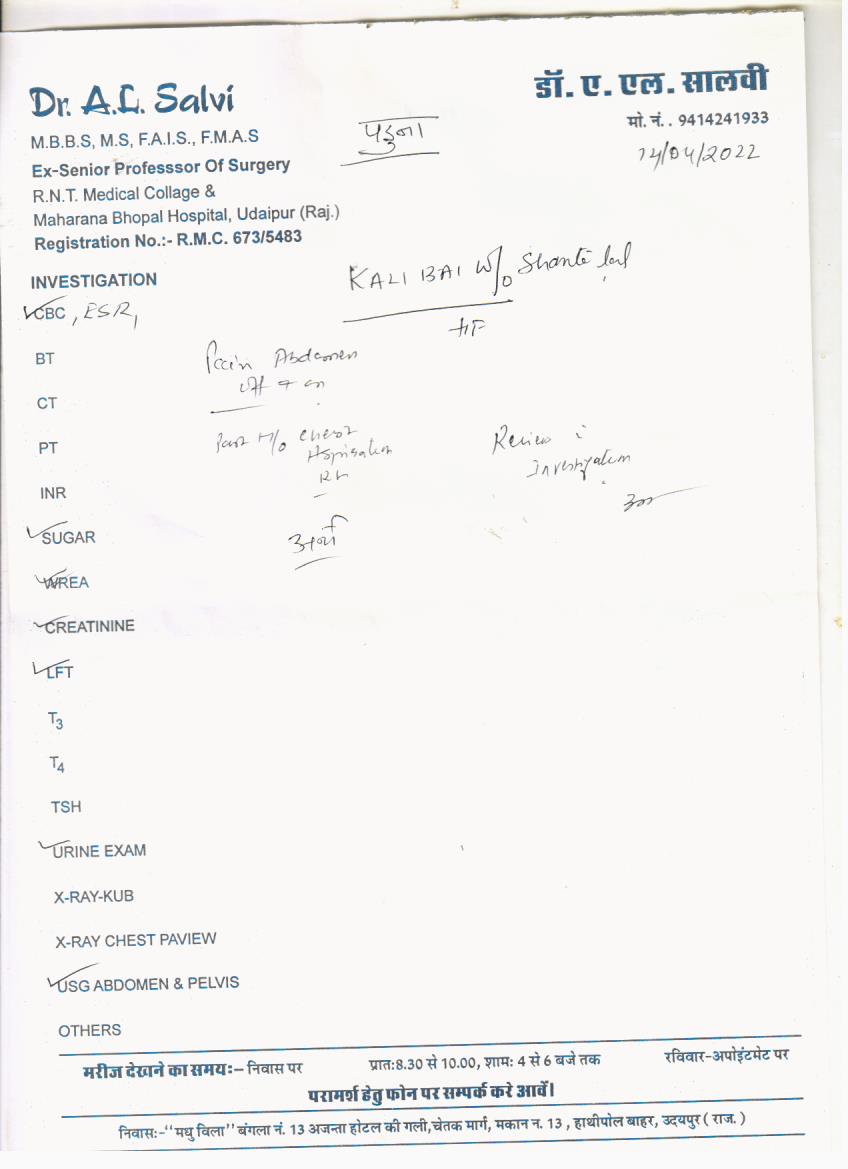 Dr. A.L. Salvi
डॉ. ए. एल. सालवी
M.B.B.S, M.S, F.A.I.S., F.M.A.S
मो. नं. . 9414241933
पडुना
14/04/2022
Ex-Senior Professsor Of Surgery
R.N.T. Medical Collage &
Maharana Bhopal Hospital, Udaipur (Raj.)
Registration No.:- R.M.C. 673/5483
INVESTIGATION
KALI BAI W/o Shanti lal
CBC, ESR,
BT
Pain Abdomen
off + on
CT
PT
Past H/o Chest
Aspiration
Rt
Review
Investigation
INR
SUGAR
WREA
CREATININE
LFT
T3
T4
TSH
URINE EXAM
X-RAY-KUB
X-RAY CHEST PAVIEW
USG ABDOMEN & PELVIS
OTHERS
मरीज देखने का समय:– निवास पर प्रात:8.30 से 10.00, शाम: 4 से 6 बजे तक रविवार-अपोइंटमेट पर
परामर्श हेतु फोन पर सम्पर्क करे आवें।
निवास:-‘‘मधु विला’’ बंगला नं. 13 अजन्ता होटल की गली,चेतक मार्ग, मकान न. 13 , हाथीपोल बाहर, उदयपुर ( राज. )